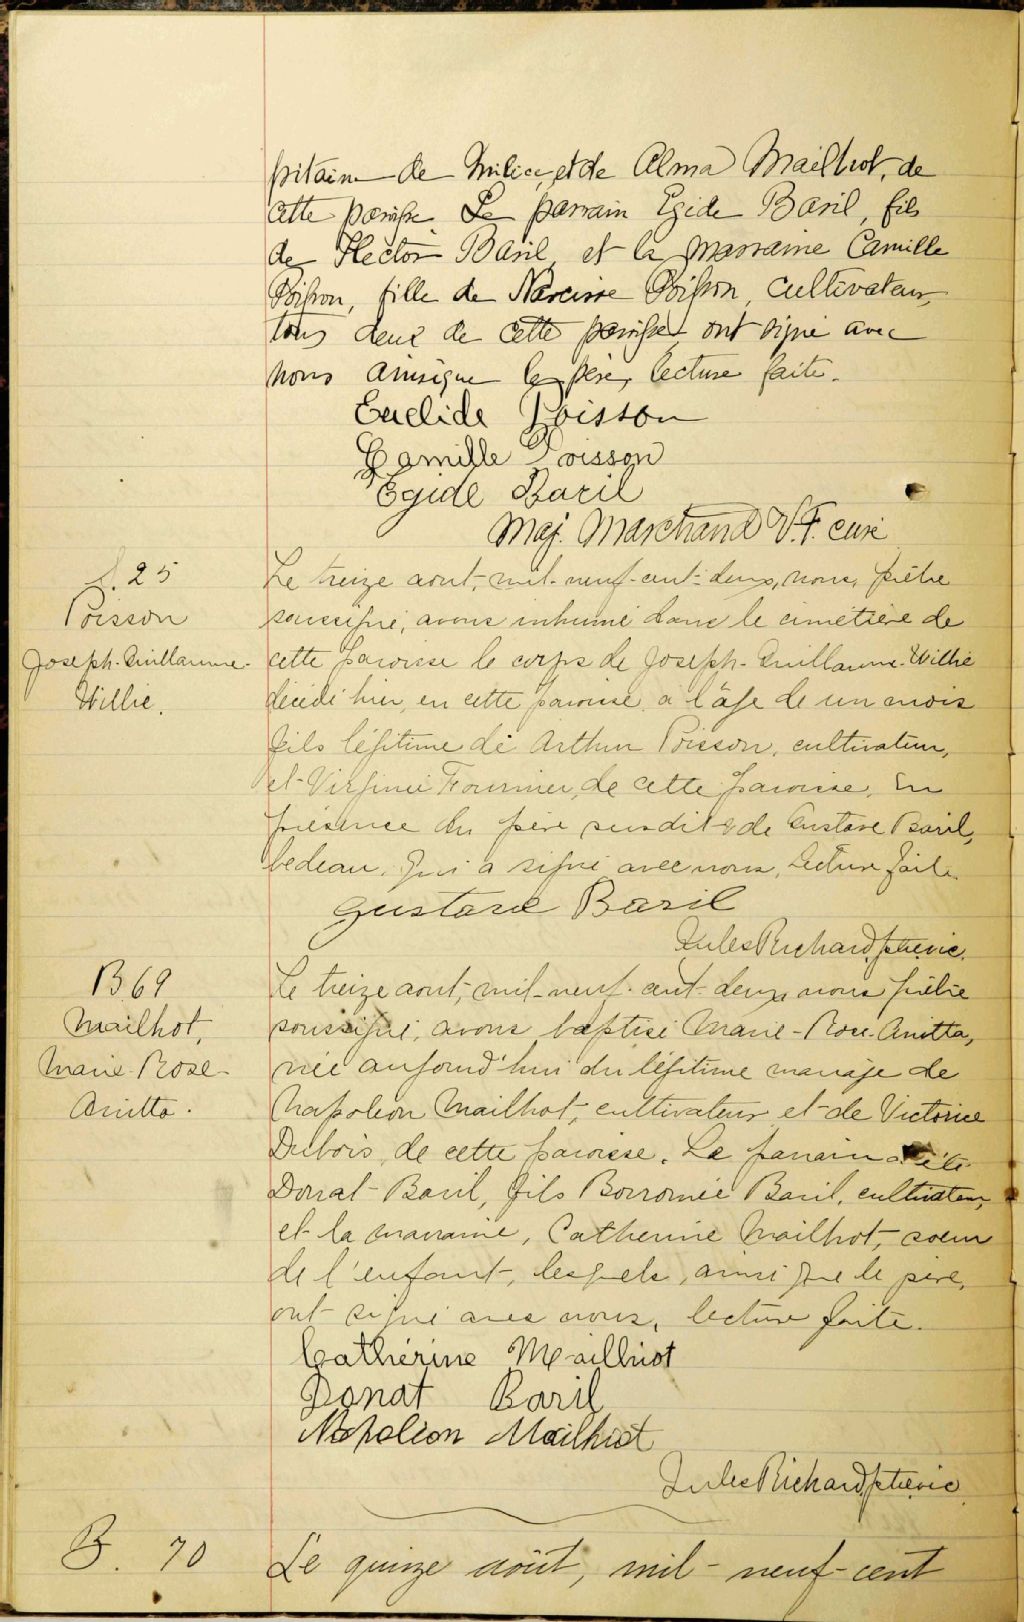 pitaine de milice, et de Alma Mailhot, de
cette paroisse. Le parrain Egide Baril, fils
de Hector Baril, et la marraine Camille
Poisson, fille de Narcisse Poisson, cultivateur,
tous deux de cette paroisse ont signé avec
nous ainsi que le père, lecture faite.
Euclide Poisson
Camille Poisson
Egide Baril
Maj. Marchand V.F. curé
S. 25
Poisson
Joseph-Guillaume-
Willie.
Le treize aout, mil-neuf-cent-deux, nous, prêtre
soussigné, avons inhumé dans le cimetière de
cette paroisse le corps de Joseph-Guillaume-Willie
décédé hier, en cette paroisse à l'âge de un mois
fils légitime de Arthur Poisson, cultivateur,
et Virginie Fournier, de cette paroisse. En
présence du père susdit & de Gustave Baril,
bedeau, qui a signé avec nous, lecture faite.
Gustave Baril
Jules Richard, ptre vic.
B 69
Mailhot,
Marie-Rose-
Anitta.
Le treize aout, mil-neuf-cent-deux, nous prêtre
soussigné, avons baptisé Marie-Rose-Anitta,
née aujourd'hui du légitime mariage de
Napoléon Mailhot, cultivateur et de Victorice
Dubois, de cette paroisse. Le parrain a été
Donat Baril, fils Borromée Baril, cultivateur,
et la marraine, Catherine Mailhot, soeur
de l'enfant, lesquels, ainsi que le père,
ont signé avec nous, lecture faite.
Cathérine Mailhiot
Donat Baril
Napoléon Mailhiot
Jules Richard, ptre vic.
B. 70
Le quinze août, mil-neuf-cent